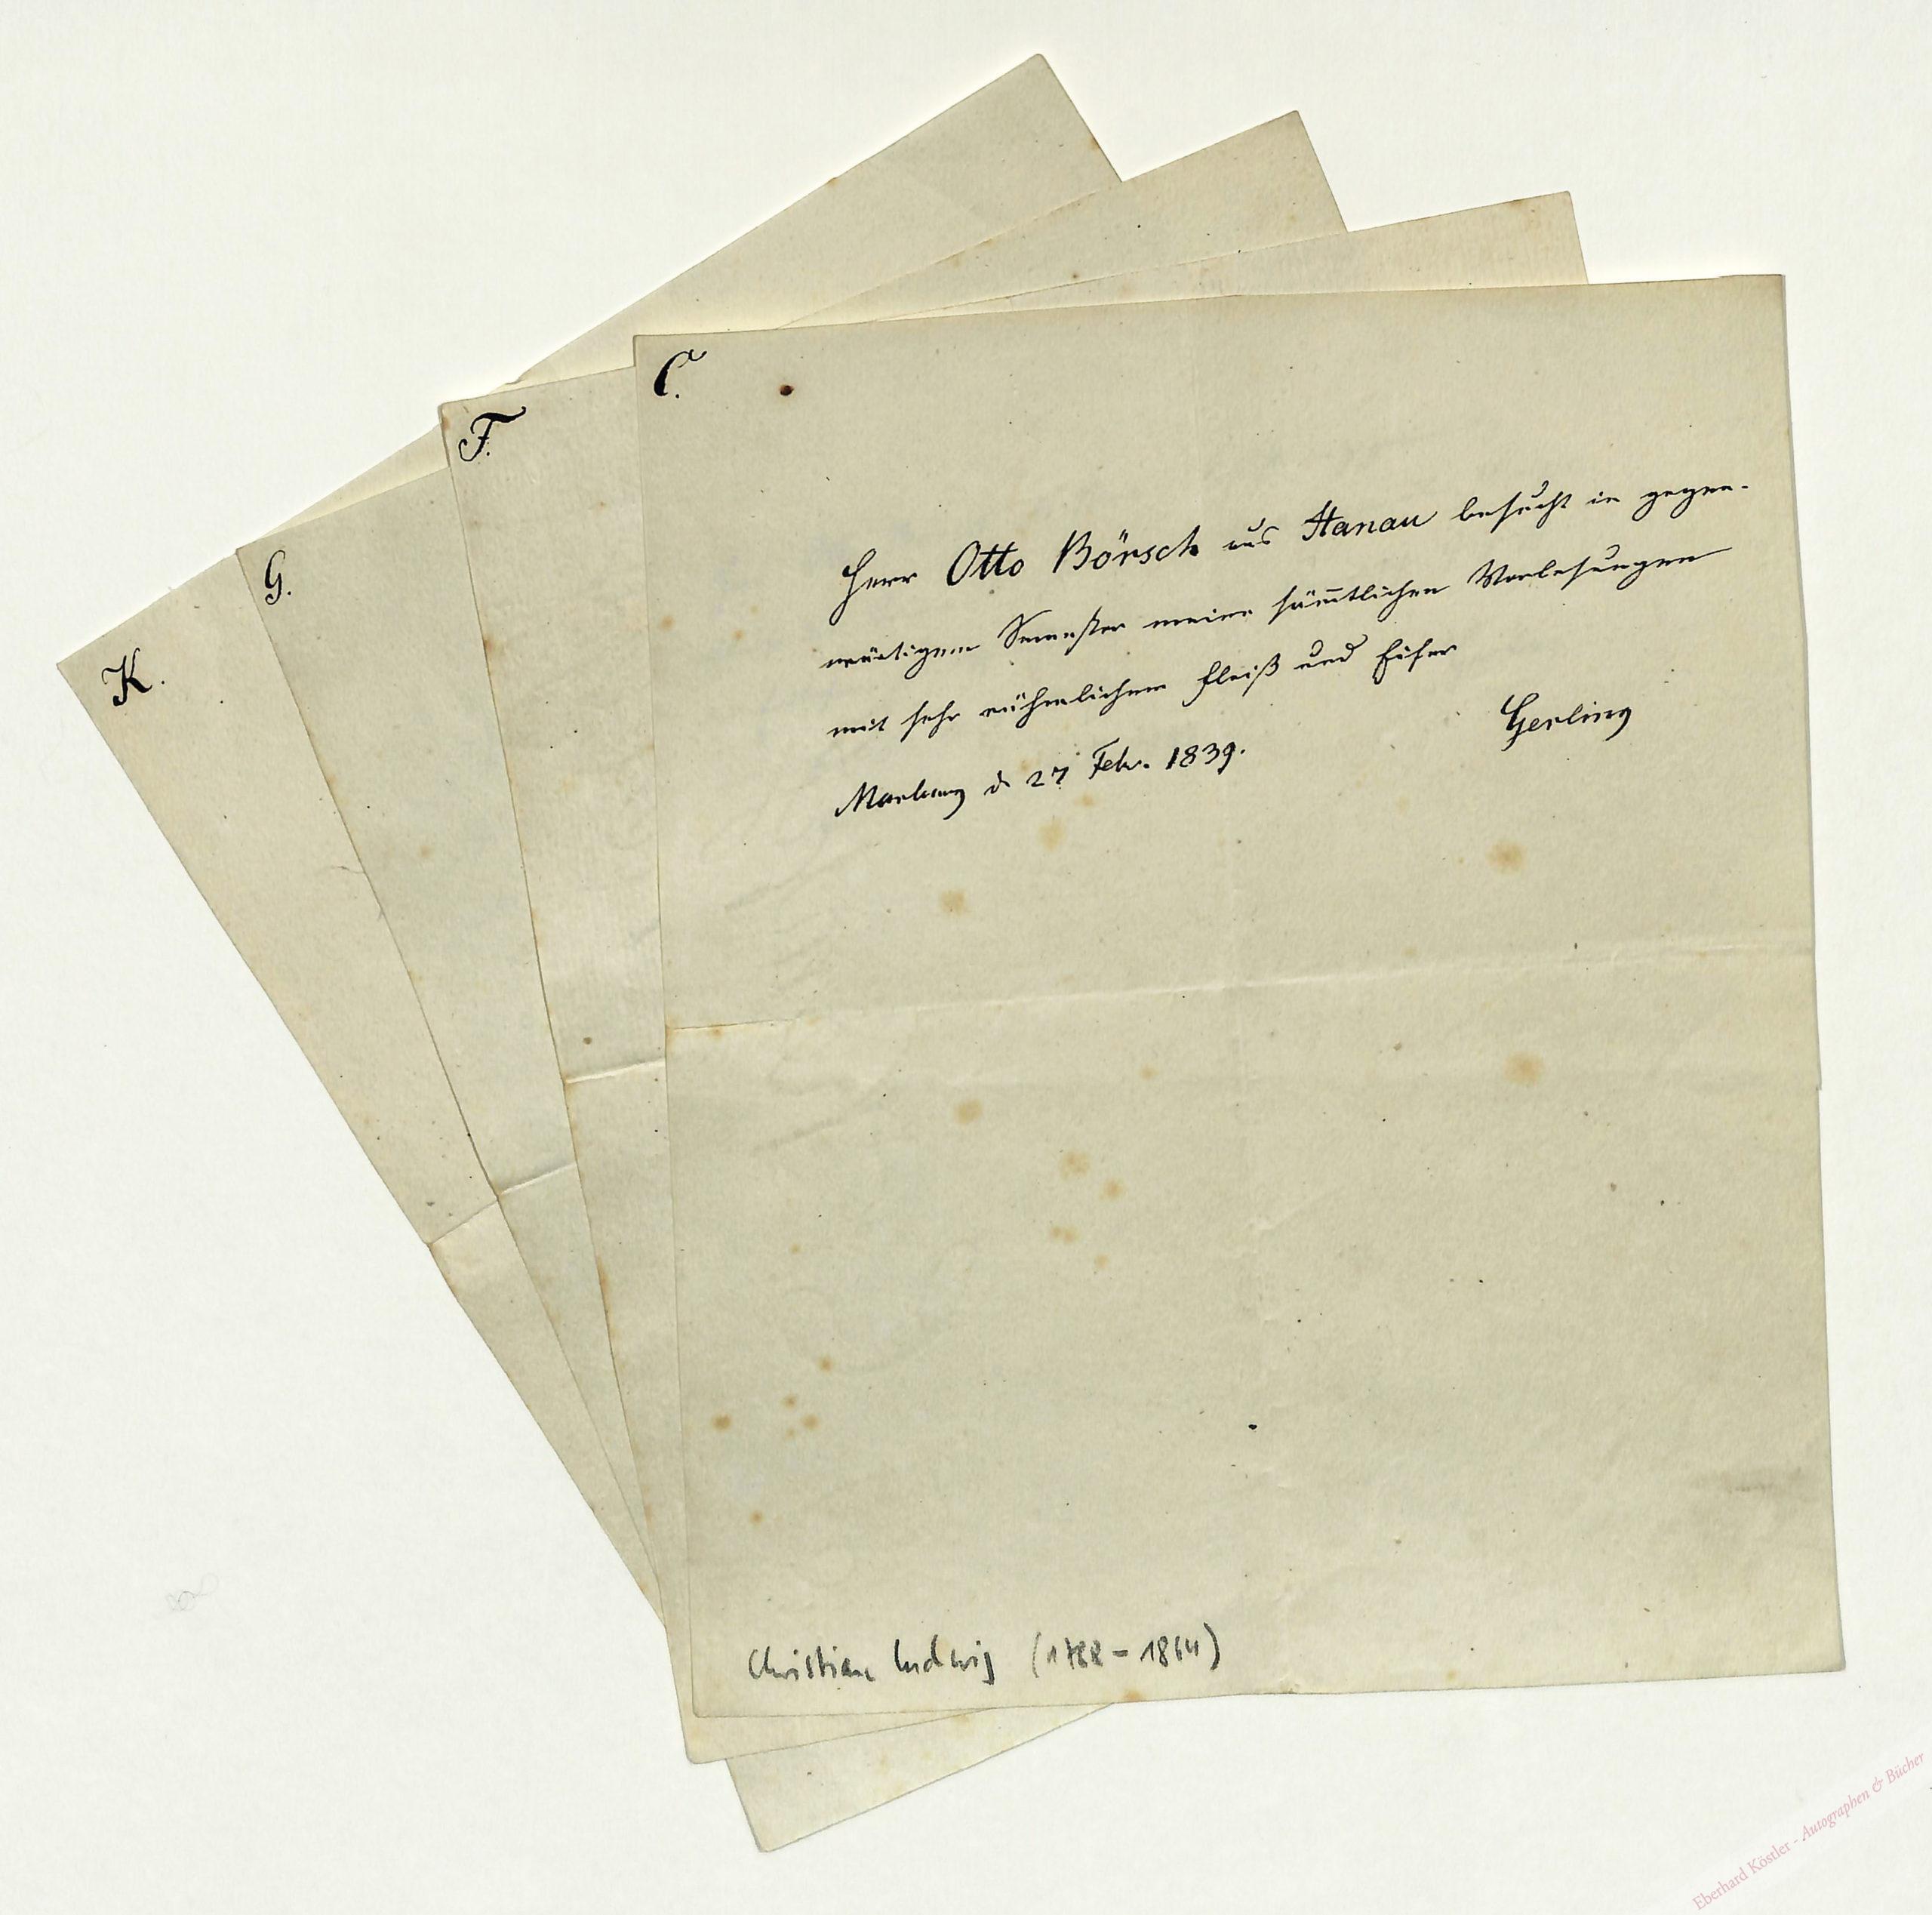 C.
F.
G.
K.
Herr Otto Börsch aus Hanau besucht in gegen-
wärtigem Semester meine sämtlichen Vorlesungen
mit sehr rühmlichem Fleiß und Eifer
Gerling
Marburg d 27 Febr. 1839.
Christian Ludwig (1788-1864)
Eberhard Köstler - Autographen & Bücher